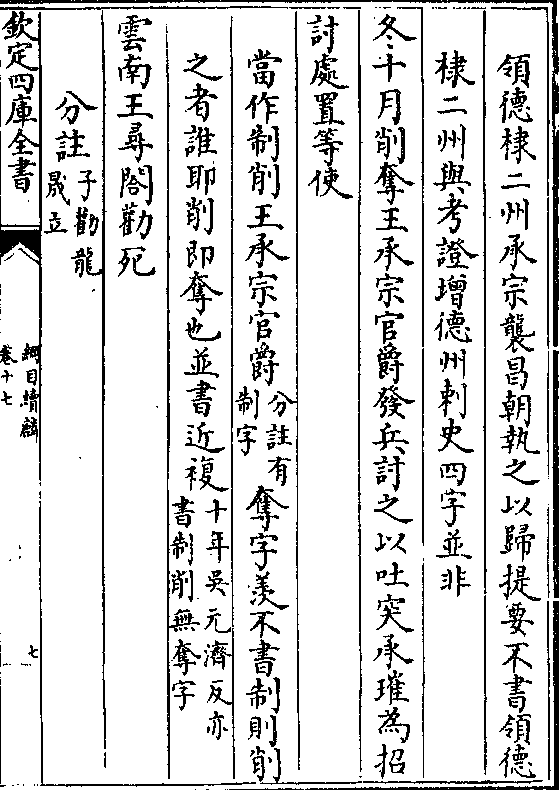 領德棣二州承宗襲昌朝執之以歸提要不書領德
棣二州與考證增德州刺史四字並非
冬十月削奪王承宗官爵發兵討之以吐突承璀為招
討處置等使
當作制削王承宗官爵分註有制字奪字羨不書制則削
之者誰耶削即奪也並書近複十年吳元濟反亦書制削無奪字
雲南王尋閤勸死
分註子勸龍晟立
欽定四庫全書
綱目續麟
卷十七
七